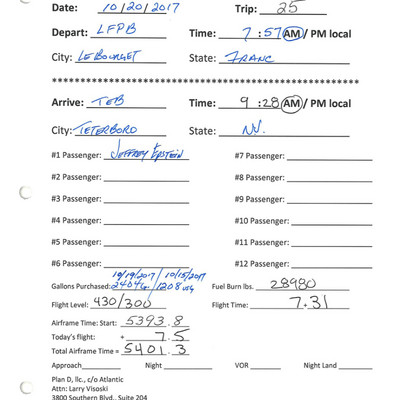 Date: 10/20/2017 Trip: 25
Depart: LFPB Time: 7 : 57 AM / PM local
City: LEBOURGET State: FRANC
****************************************************
Arrive: TEB Time: 9 : 28 AM / PM local
City: TETERBORO State: NJ.
#1 Passenger: JEFFREY EPSTEIN #7 Passenger:
#2 Passenger: #8 Passenger:
#3 Passenger: #9 Passenger:
#4 Passenger: #10 Passenger:
#5 Passenger: #11 Passenger:
#6 Passenger: #12 Passenger:
10/19/2017 / 10/15/2017
Gallons Purchased: 2404 G / 1208 USG Fuel Burn lbs. 28980
Flight Level: 430/300 Flight Time: 7+31
Airframe Time: Start: 5393.8
Today's flight: + 7.5
Total Airframe Time = 5401.3
Approach Night VOR Night Land
Plan D, llc., c/o Atlantic
Attn: Larry Visoski
3800 Southern Blvd., Suite 204